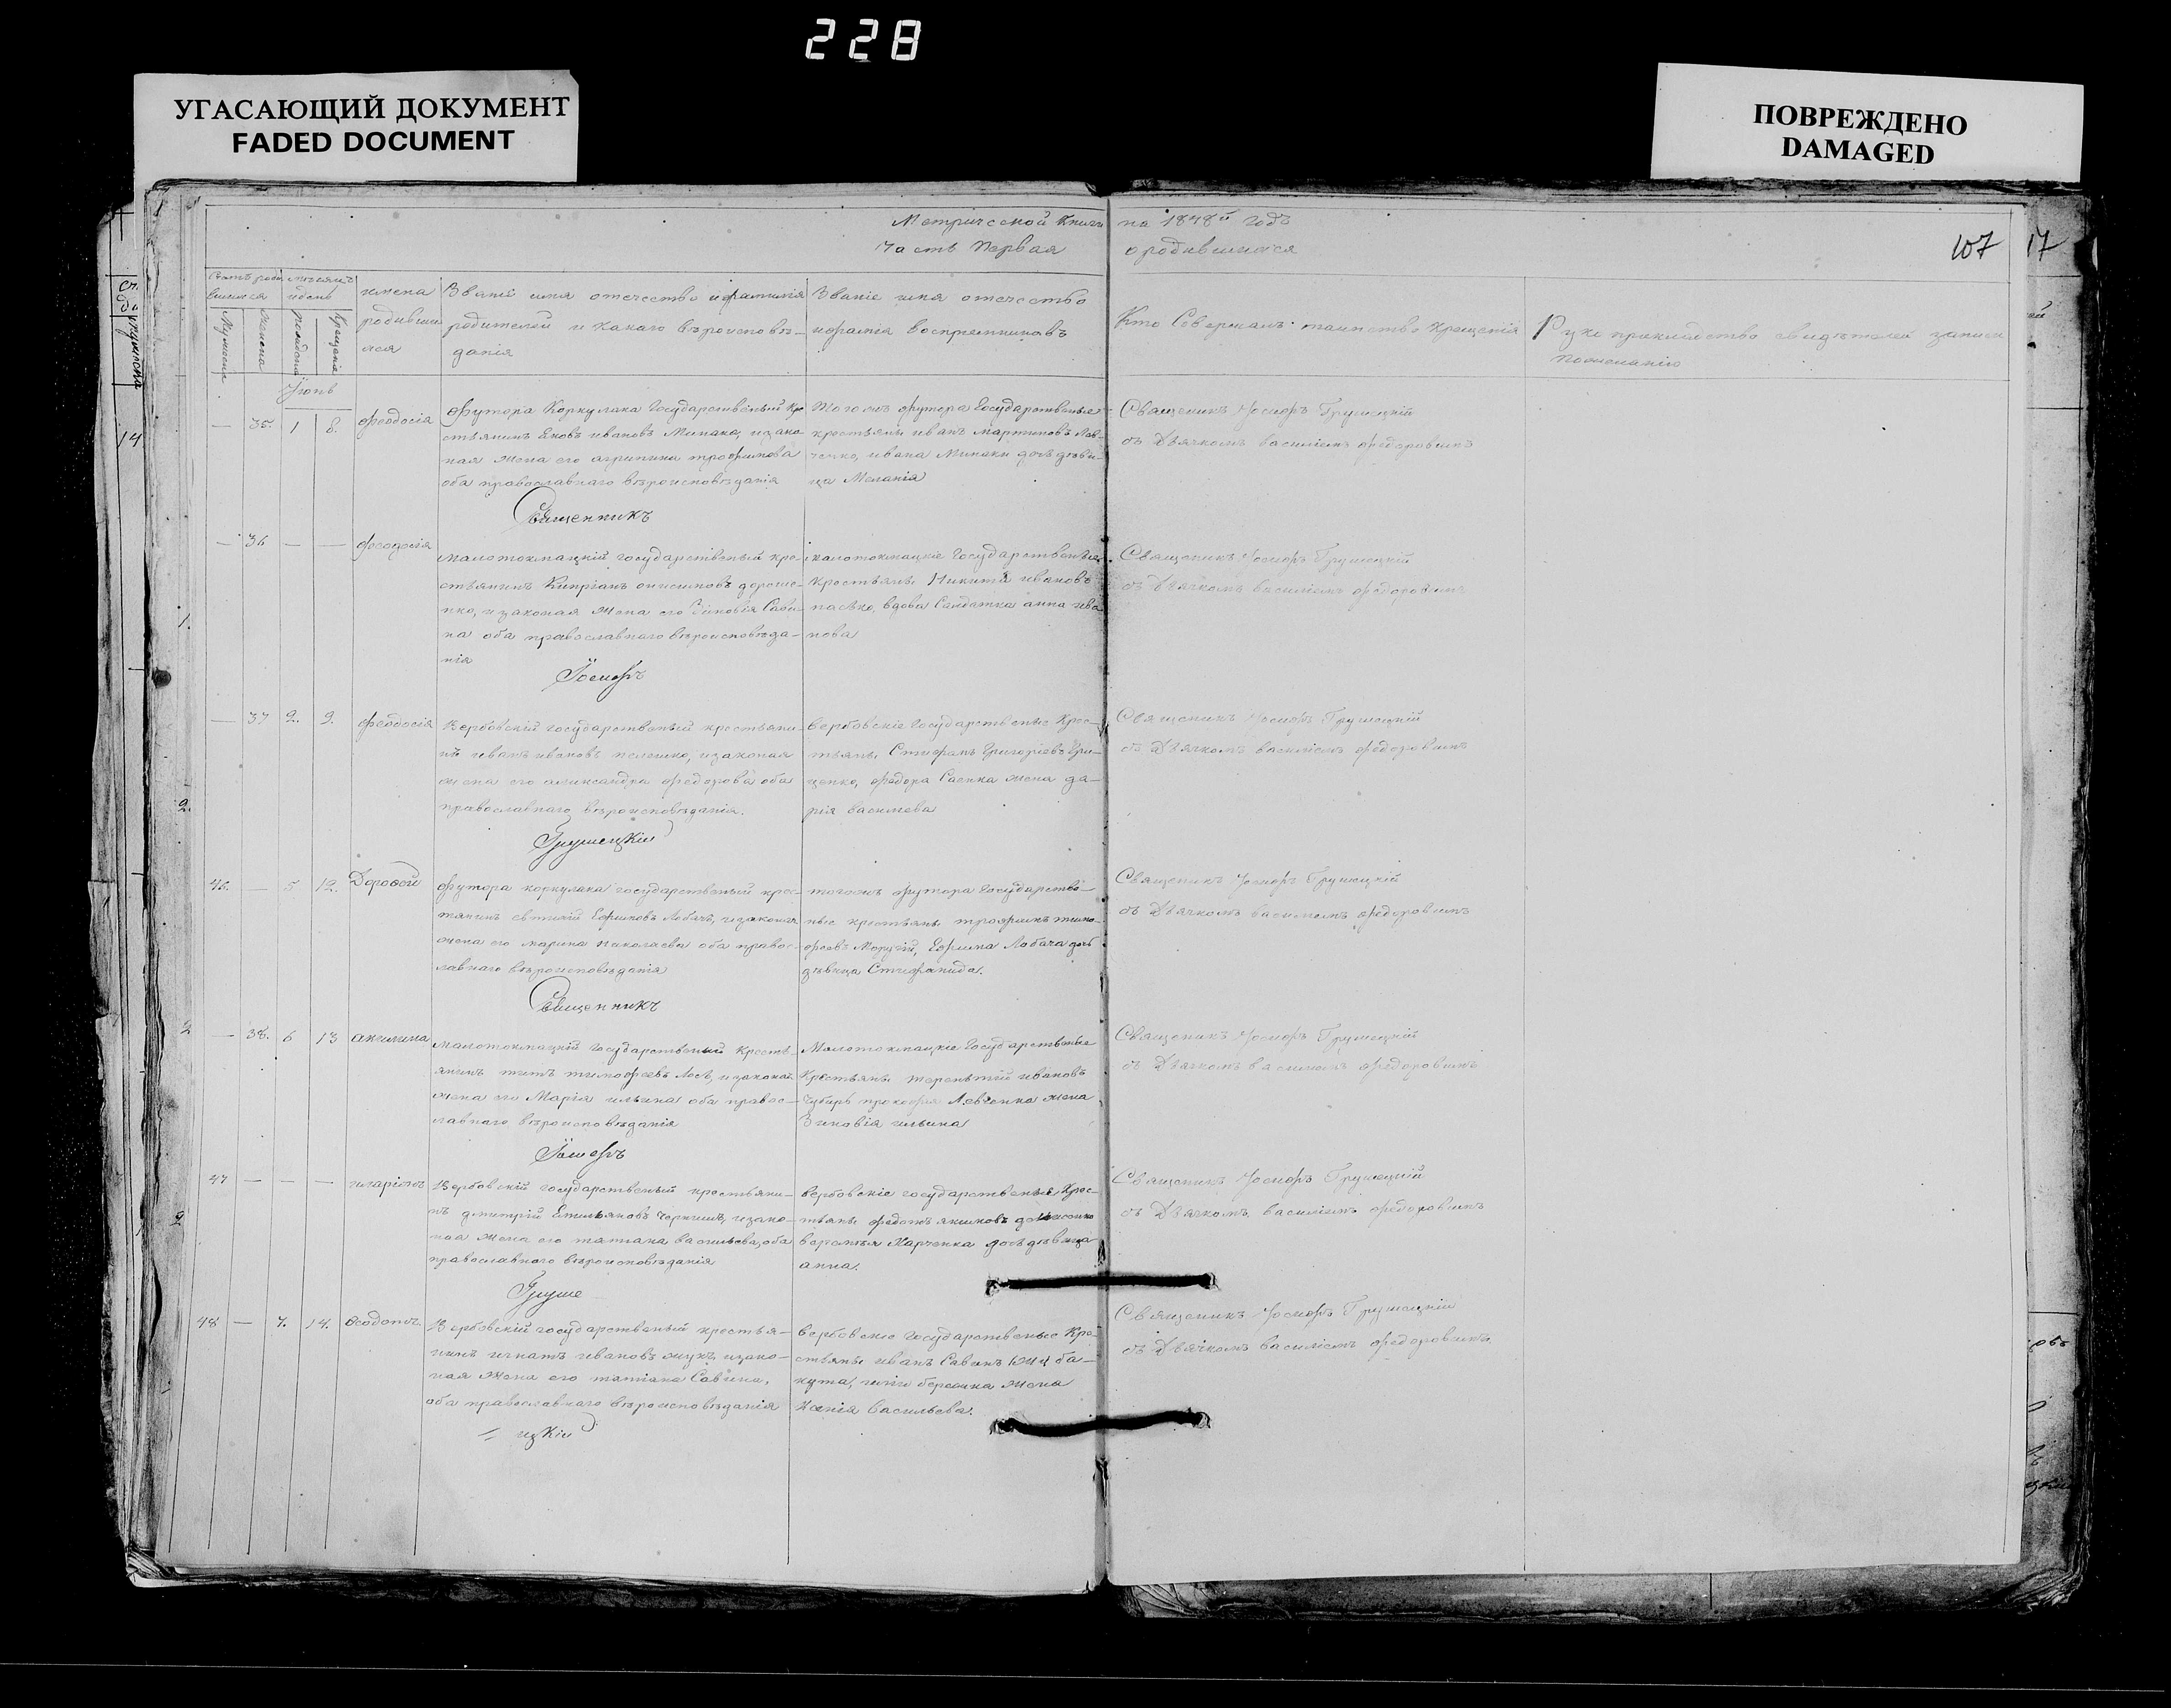 228
УГАСАЮЩИЙ ДОКУМЕНТ
FADED DOCUMENT
ПОВРЕЖДЕНО
DAMAGED
Метрической Книги на 1848й годъ
Часть Первая о родившихся
107
17
14
имена родивших ся
Званіе имя отечество и фамилія
родителей и какаго вѣроисповѣ-
данія
Званіе имя отечество
и фамлія воспрiемниковъ
Кто Совершалъ таинство крещенія
Рукоприкладство свидѣтелей записи
по желанію
Іюнь
— 35. 1 8. феодосія
футора Коркулака государственый кре
стьянинъ Яковъ ивановъ Минака, и зако
ная жена его агрипина трофимова
оба православнаго вѣроисповѣданія
того жъ футора государственые
крестьяне иванъ мартиновъ Лав-
ченко, ивана Минаки дочь дѣви-
ца Меланія
Священикъ Іосифъ Грушецкій
съ Дьячкомъ василіемъ федоровимъ
Священникъ
— 36 — — феодосія
малотокмацкій государственый кре-
стьянинъ Кипріанъ онисимовъ дороше-
нко, и законая жена его Зѣновія Сави-
на оба православнаго вѣроисповѣда-
нія
малотокмацкіе государственые
крестьяне Никита ивановъ
пасько, вдова Салдатка анна ива
нова
Священикъ Іосифъ Грушецкій
съ Дьячкомъ василіемъ федоровимъ
Іосифъ
— 37 2. 9. феодосія
Вербовскій государственый крестьяни-
нъ иванъ ивановъ, и законая
жена его александра федорова оба
православнаго вѣроисповѣданія.
вербовскіе государственые крес-
тьяне, Стефанъ Григоріевъ Гри-
ценко, федора Саенка жена да-
рія васильева
Священикъ Іосифъ Грушецкій
съ Дьячкомъ василіемъ федоровимъ
Грушецкій
46. — 5 12. Дорофей
футора коркулака государственый крес-
тянинъ евтихій Ефимовъ Лобачъ, и законая
жена его марина николаева оба правос-
лавнаго вѣроисповѣданія
тогожъ футора государстве-
ные крестьяне трофимъ тимо-
феевъ, Ефима Лобача дочь
дѣвица Стефанида.
Священикъ Іосифъ Грушецкій
съ Дьячкомъ василіемъ федоровимъ
Священникъ
— 38. 6 13 акилина
малотокмацкій государственый кресть-
янинъ титъ тимофеевъ Лось, и законая
жена его Марія ильина оба правос-
лавнаго вѣроисповѣданія
Малотокмацкіе государственые
крестьяне терентій ивановъ
Чубирь прокофія Левченка жена
Зиновія ильина
Священикъ Іосифъ Грушецкій
съ Дьячкомъ василіемъ федоровимъ
Іосифъ
47 — — — иларіонъ
Вербовскій государственый крестьяни-
нъ дмитрій Емильяновъ, и зако-
ная жена его татіана васильева, оба
православнаго вѣроисповѣданія
вербовскіе государственые крес-
тьяне федотъ якимовъ
Харченка дочь дѣвица
анна.
Священикъ Іосифъ Грушецкій
съ Дьячкомъ василіемъ федоровимъ
Груше
48 — 7. 14. Феодотъ.
Вербовскій государственый крестья-
нинъ игнатъ ивановъ жукъ, и зако-
ная жена его татіана Савина,
оба православнаго вѣроисповѣданія
вербовскіе государственые кре-
стьяне иванъ Савинъ ба-
кута, жена
Ксенія васильева.
Священикъ Іосифъ Грушецкій
съ Дьячкомъ василіемъ федоровимъ
цкій